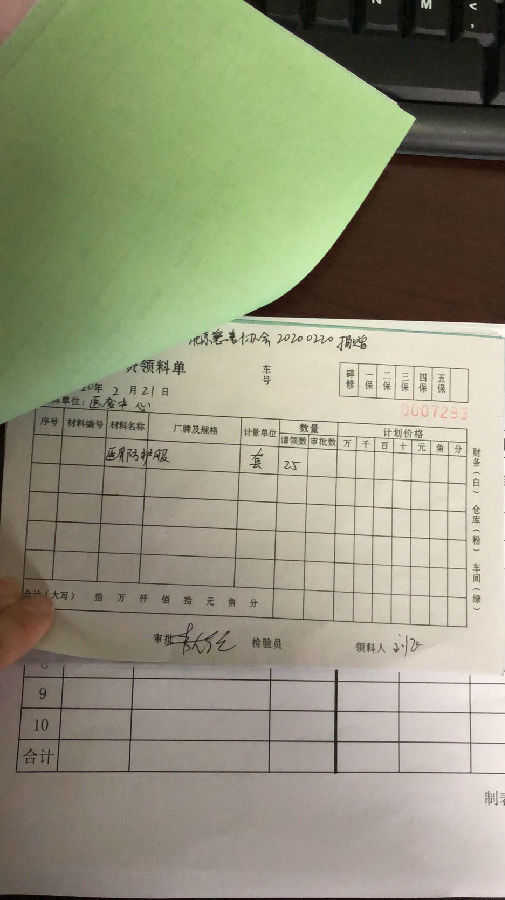 N M <
,
慈善协会 20200220 捐赠
领料单
车号
碑修 一保 二保 三保 四保 五保
20年 2月21日
料单位: 医疗中心
0007293
序号 材料编号 材料名称 厂牌及规格 计量单位 数量 计划价格
请领数 审批数 万 千 百 十 元 角 分
医用防护服 套 25
财务(白) 仓库(粉) 车间(绿)
合计(大写) 拾 万 仟 佰 拾 元 角 分
审批 检验员 领料人
8
9
10
合计
制表